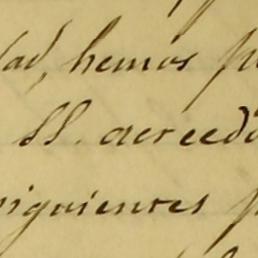 dad, hemos
SS. acreedo
siguientes